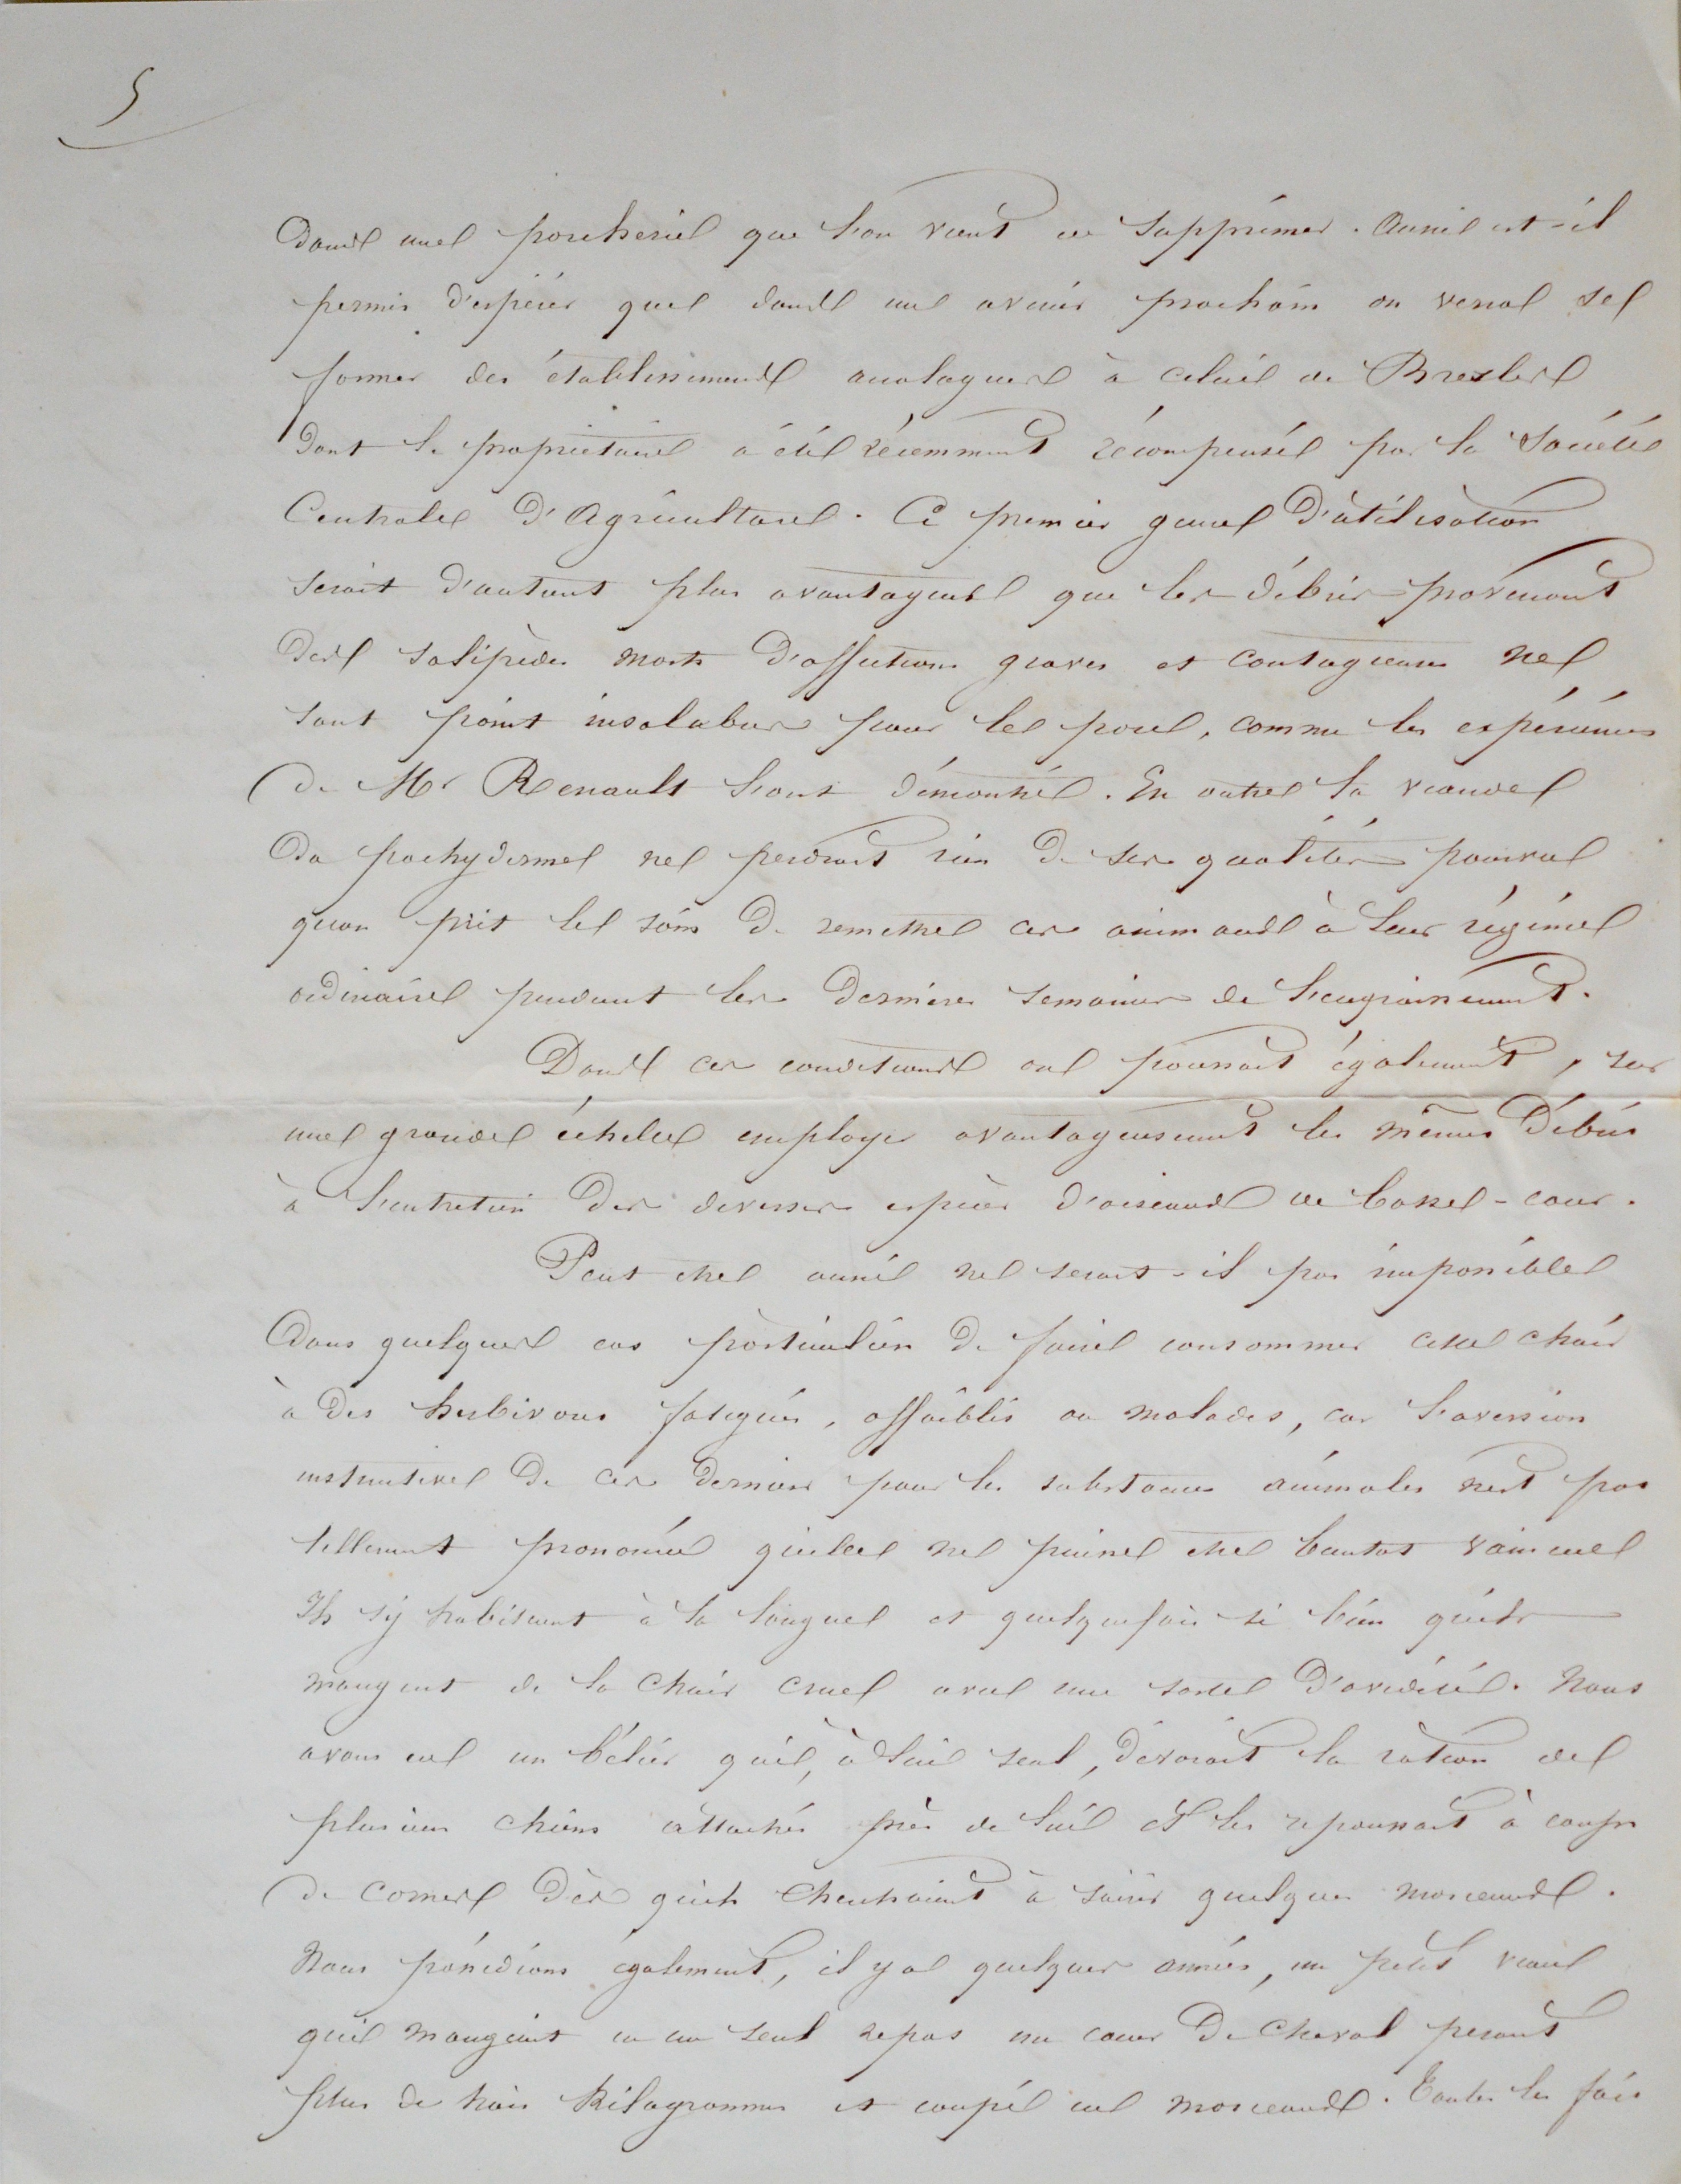 5
dans une porcherie que l'on vient de supprimer. Aussi est-il
permis d'espérer que dans un avenir prochain on verra se
former des établissements analogues à celui de Bresles
dont le propriétaire a été récemment récompensé par la Société
Centrale d'Agriculture. Ce premier genre d'utilisation
serait d'autant plus avantageux que les débris provenant
des solipèdes morts d'affections graves et contagieuses ne
sont point insalubres pour le porc, comme les expériences
de Mr Renault l'ont démontré. En outre la viande
du pachyderme ne perdrait rien de ses qualités pourvu
qu'on prit le soin de remettre ces animaux à leur régime
ordinaire pendant les dernières semaines de l'engraissement.
Dans ces conditions on pourrait également, sur
une grande échelle employer avantageusement les mêmes débris
à l'entretien des diverses espèces d'oiseaux de basse-cour.
Peut etre aussi ne serait-il pas impossible
dans quelques cas particuliers de faire consommer cette chair
à des herbivores fatigués, affaiblis ou malades, car l'aversion
instinctive de ces derniers pour les substances animales n'est pas
tellement prononcée qu'elle ne puisse etre bientot vaincue
Ils s'y habituent à la longue et quelquefois si bien qu'ils
mangent de la chair crue avec une sorte d'avidité. Nous
avons eu un bélier qui, à lui seul, dévorait la ration de
plusieurs chiens attachés près de lui et les repoussait à coups
de cornes dès qu'ils cherchaient à saisir quelques morceaux.
Nous possédions également, il y a quelques années, un petit veau
qui mangeait en un seul repas un coeur de cheval pesant
plus de trois kilogrammes et coupé en morceaux. Toutes les fois